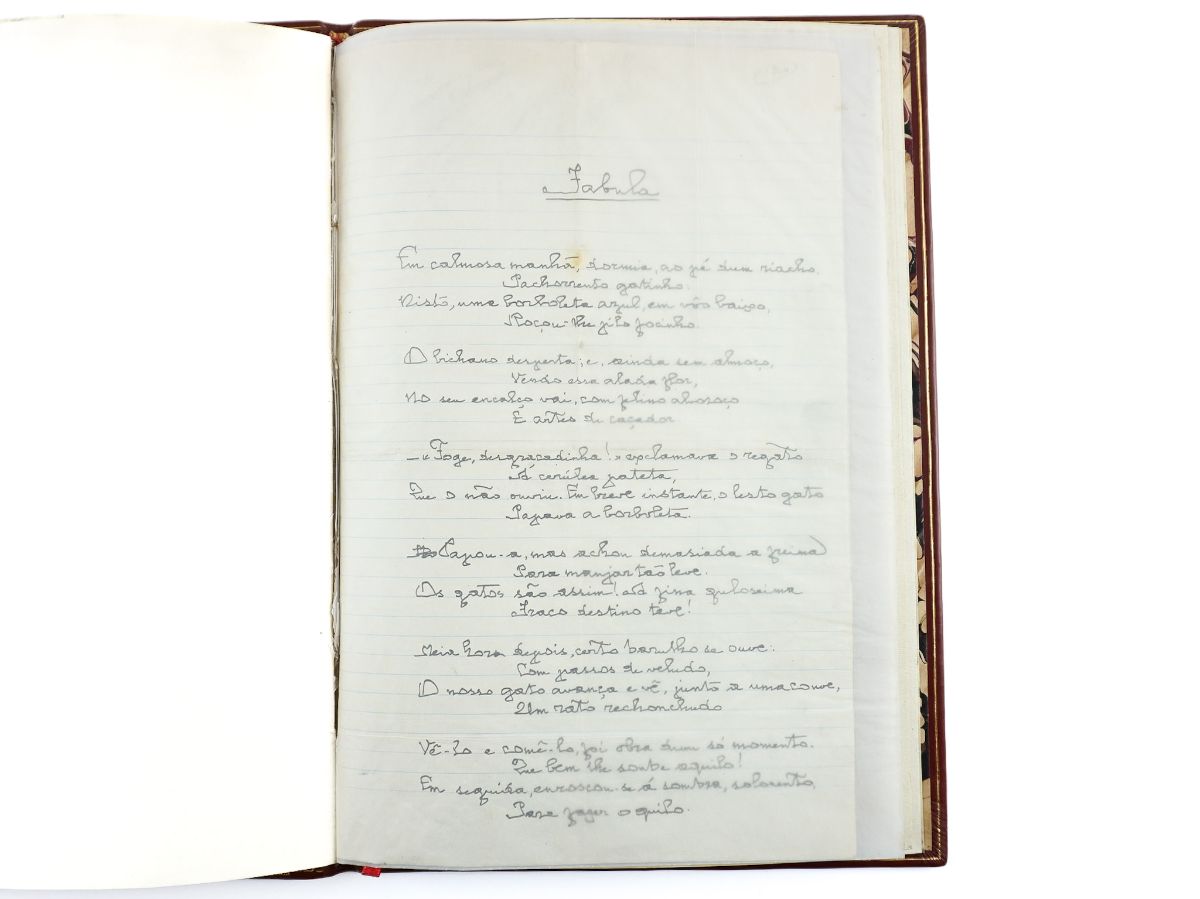 Fabula
Em calmosa manhã, dormia, ao pé dum riacho,
Pachorrento gatinho.
Nisto, uma borboleta azul, em vôo baixo,
Roçou-lhe pelo focinho.
O bichano desperta; e, ainda sem almoço,
Vendo essa alada flor,
No seu encalço vai, com felino alvoroço
E artes de caçador
—«Foge, desgraçadinha!» exclamava o regato
Á cerúlea pateta,
Que o não ouviu. Em breve instante, o lesto gato
Papava a borboleta.
Papou-a, mas achou demasiada a freima
Para manjar tão leve.
Os gatos são assim! Á fina guloseima
Fraco destino teve!
Meia hora depois, certo barulho se ouve:
Com passos de veludo,
O nosso gato avança e vê, junto a uma couve,
Um rato rechonchudo
Vê-lo e comê-lo, foi obra dum só momento.
Que bem lhe soube aquilo!
Em seguida, enroscou-se á sombra, solorento,
Para fazer o quilo.